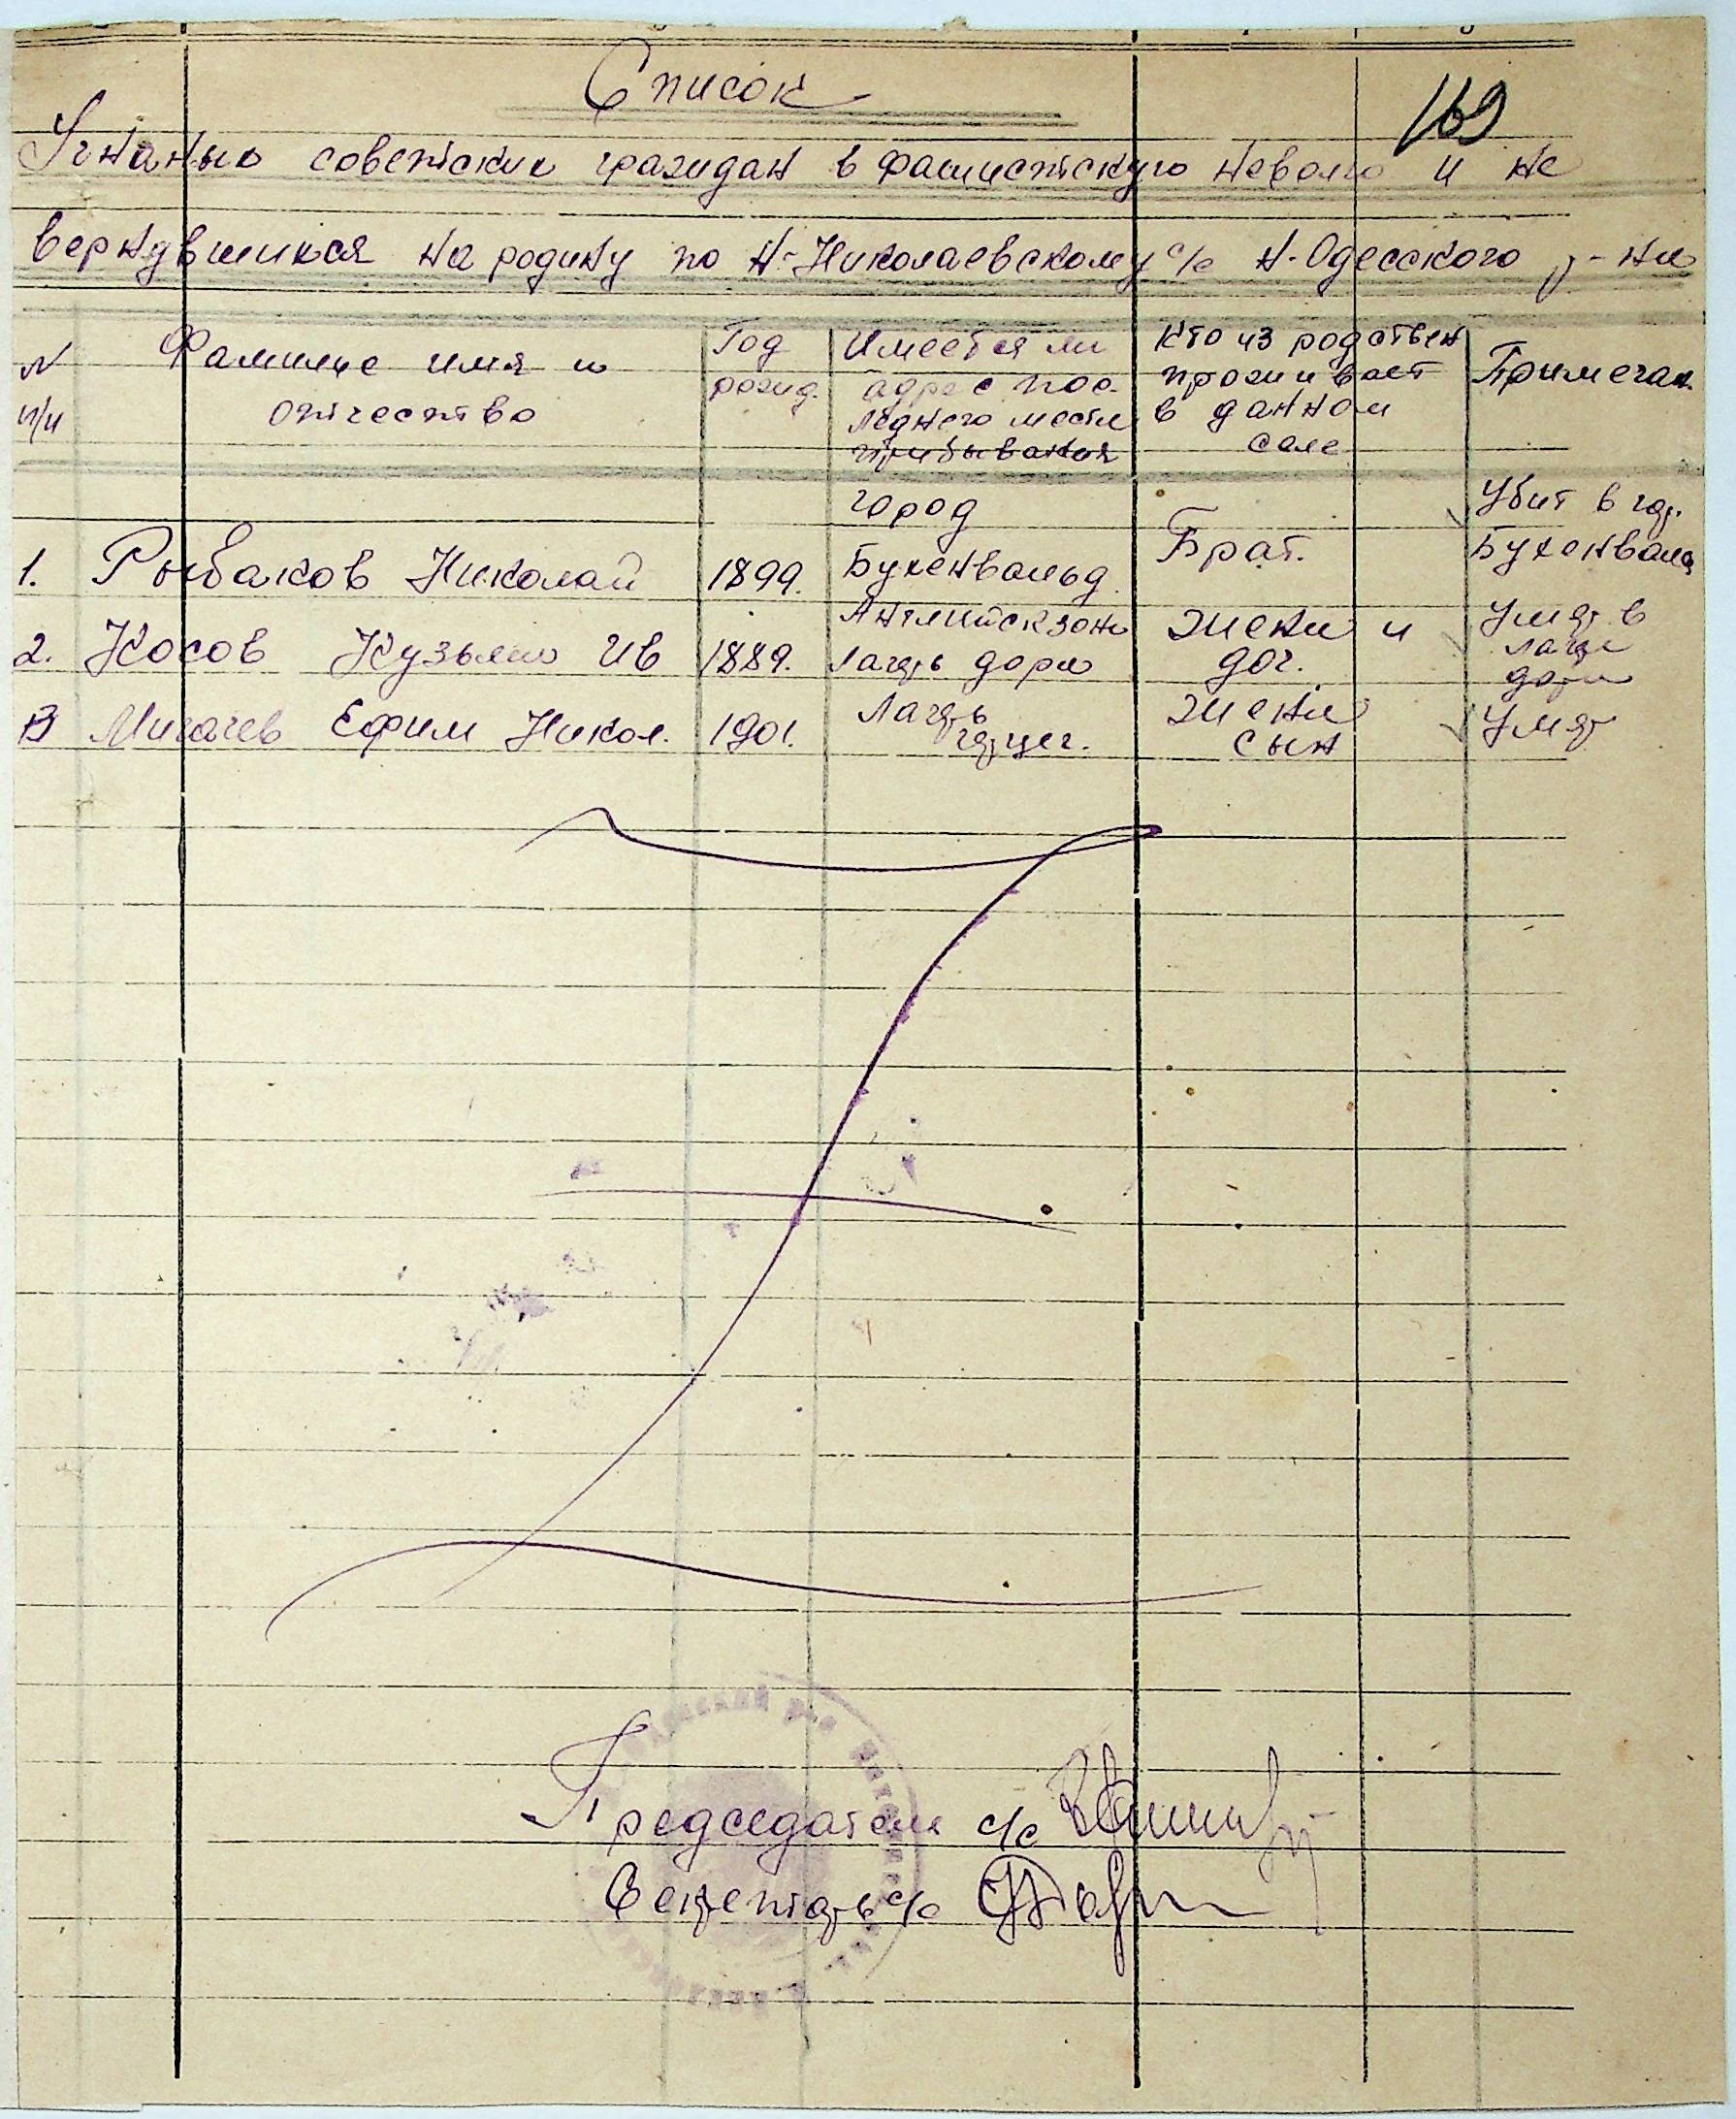 Список
169
Угнаных советских граждан в фашистскую неволю и не
вернувшихся на родину по Н-Николаевскому с/с Н-Одесского р-на
N п/п
Фамилие имя и отчество
Год рожд.
Имеется ли адрес пос-леднего места прибывания
Кто из родствен проживает в данном селе
Примечан.
1. Рыбаков Николай 1899. город Бухенвальд Брат. Убит в гор. Бухенвальд
2. Косов Кузьма Ив 1889. Английск зона Лагерь дора жена и доч. Умер в лагере дора
3 Мигачев Ефим Никол. 1901. Лагерь герцег. жена сын Умер
Председатель с/с
Секретарь с/с